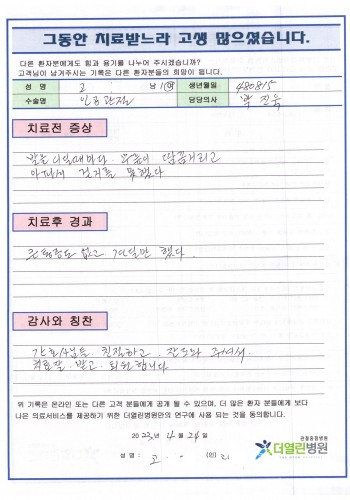 그동안 치료받느라 고생 많으셨습니다.
다른 환자분에게도 힘과 용기를 나누어 주시겠습니까?
고객님이 남겨주시는 기록은 다른 환자분들의 희망이 됩니다.
성 명 고 남 / 여 생년월일 480815
수술명 인공관절 담당의사 박진욱
치료전 증상
발을 디딜때마다 무릎이
아파서 걷지를 못했다
치료후 경과
큰 통증도 없고 견딜만 했다.
감사와 칭찬
간호사님들 친절하고 잘 도와 주셔서
치료 잘 받고 퇴원합니다
위 기록은 온라인 또는 다른 고객 분들에게 공개 될 수 있으며, 더 많은 환자 분들에게 보다
나은 의료서비스를 제공하기 위한 더열린병원만의 연구에 사용 되는 것을 동의합니다.
2023년 4월 24일
성 명 : 고 (인)
관절중점병원
더열린병원